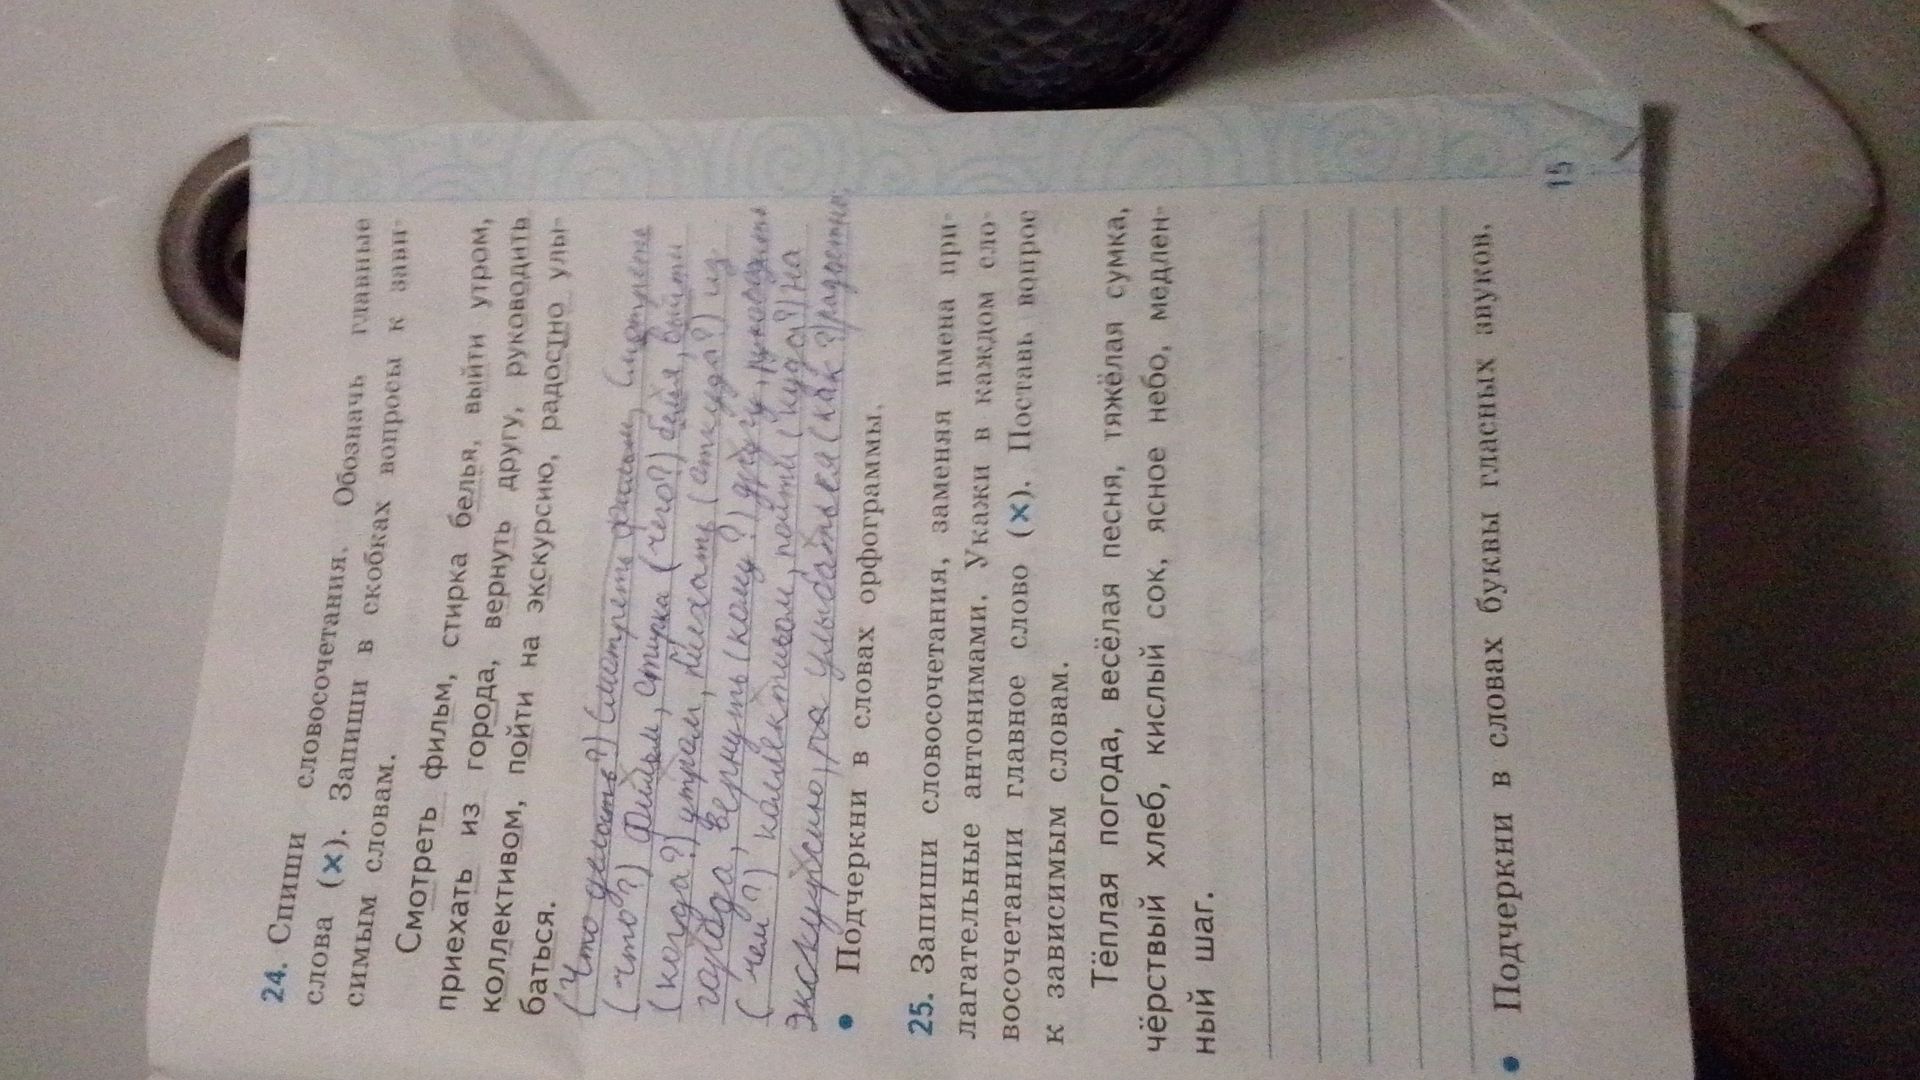 24. Спиши словосочетания. Обозначь главные
слова (×). Запиши в скобках вопросы к зави-
симым словам.
Смотреть фильм, стирка белья, выйти утром,
приехать из города, вернуть другу, руководить
коллективом, пойти на экскурсию, радостно улы-
баться.
(Что делать?) Смотреть фильм, Смотреть
(что?) фильм, стирка (чего?) белья, выйти
(когда?) утром, приехать (откуда?) из
города, вернуть (кому?) другу, руководить
(чем?) коллективом, пойти (куда?) на
экскурсию, улыбаться (как?) радостно.
• Подчеркни в словах орфограммы.
25. Запиши словосочетания, заменяя имена при-
лагательные антонимами. Укажи в каждом сло-
восочетании главное слово (×). Поставь вопрос
к зависимым словам.
Тёплая погода, весёлая песня, тяжёлая сумка,
чёрствый хлеб, кислый сок, ясное небо, медлен-
ный шаг.
• Подчеркни в словах буквы гласных звуков.
15